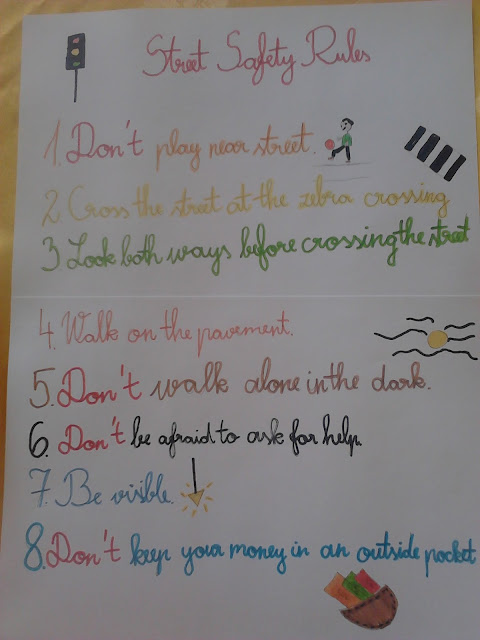 Street Safety Rules
1. Don't play near street.
2 Cross the street at the zebra crossing
3 Look both ways before crossing the street
4. Walk on the pavement.
5. Don't walk alone in the dark.
6. Don't be afraid to ask for help.
7. Be visible.
8. Don't keep your money in an outside pocket